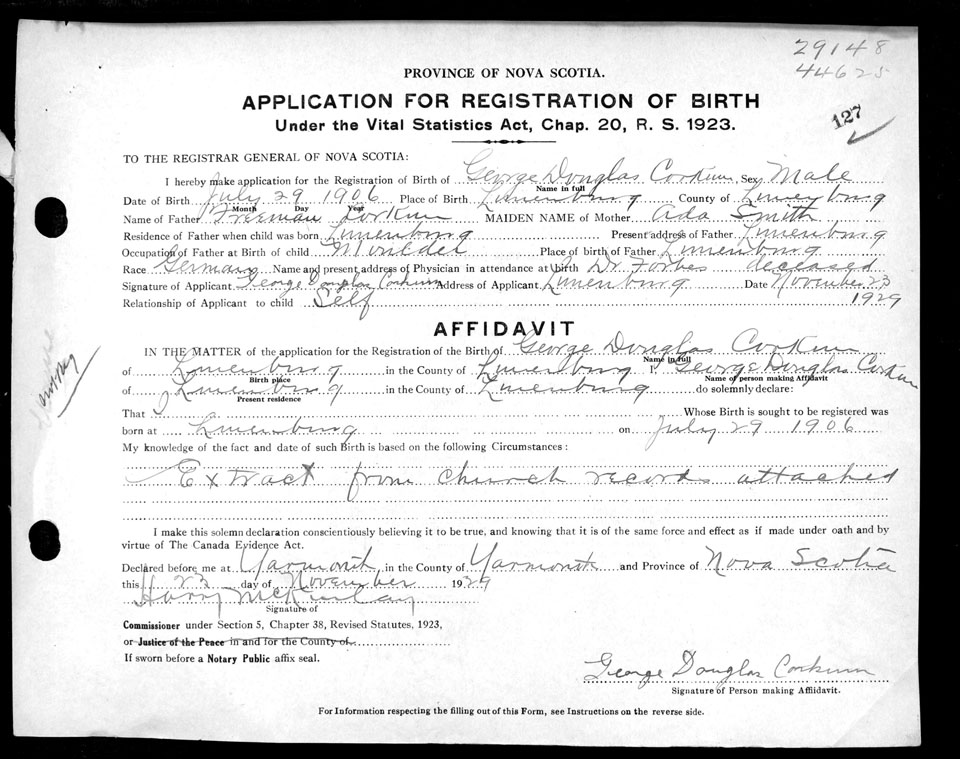 29148
44625
127
PROVINCE OF NOVA SCOTIA.
APPLICATION FOR REGISTRATION OF BIRTH
Under the Vital Statistics Act, Chap. 20, R. S. 1923.
TO THE REGISTRAR GENERAL OF NOVA SCOTIA:
I hereby make application for the Registration of Birth of George Douglas Corkum Sex Male
Name in full
Date of Birth July 29 1906 Place of Birth Lunenburg County of Lunenburg
Month Day Year
Name of Father Freeman Corkum MAIDEN NAME of Mother Ada Smith
Residence of Father when child was born Lunenburg Present address of Father Lunenburg
Occupation of Father at Birth of child Moulder Place of birth of Father Lunenburg
Race German Name and present address of Physician in attendance at birth Dr Forbes deceased
Signature of Applicant George Douglas Corkum Address of Applicant Lunenburg Date November 23
Relationship of Applicant to child Self 1929
AFFIDAVIT
IN THE MATTER of the application for the Registration of the Birth of George Douglas Corkum
Name in full
of Lunenburg in the County of Lunenburg I, George Douglas Corkum
Birth place Name of person making Affidavit
of Lunenburg in the County of Lunenburg do solemnly declare:
Present residence
That I Whose Birth is sought to be registered was
born at Lunenburg on July 29 1906
My knowledge of the fact and date of such Birth is based on the following Circumstances:
Extract from church records attached
I make this solemn declaration conscientiously believing it to be true, and knowing that it is of the same force and effect as if made under oath and by
virtue of The Canada Evidence Act.
Declared before me at Yarmouth, in the County of Yarmouth and Province of Nova Scotia
this 23 day of November 1929
Harry McKinlay
Signature of
Commissioner under Section 5, Chapter 38, Revised Statutes, 1923,
or Justice of the Peace in and for the County of
If sworn before a Notary Public affix seal.
George Douglas Corkum
Signature of Person making Affidavit.
For Information respecting the filling out of this Form, see Instructions on the reverse side.